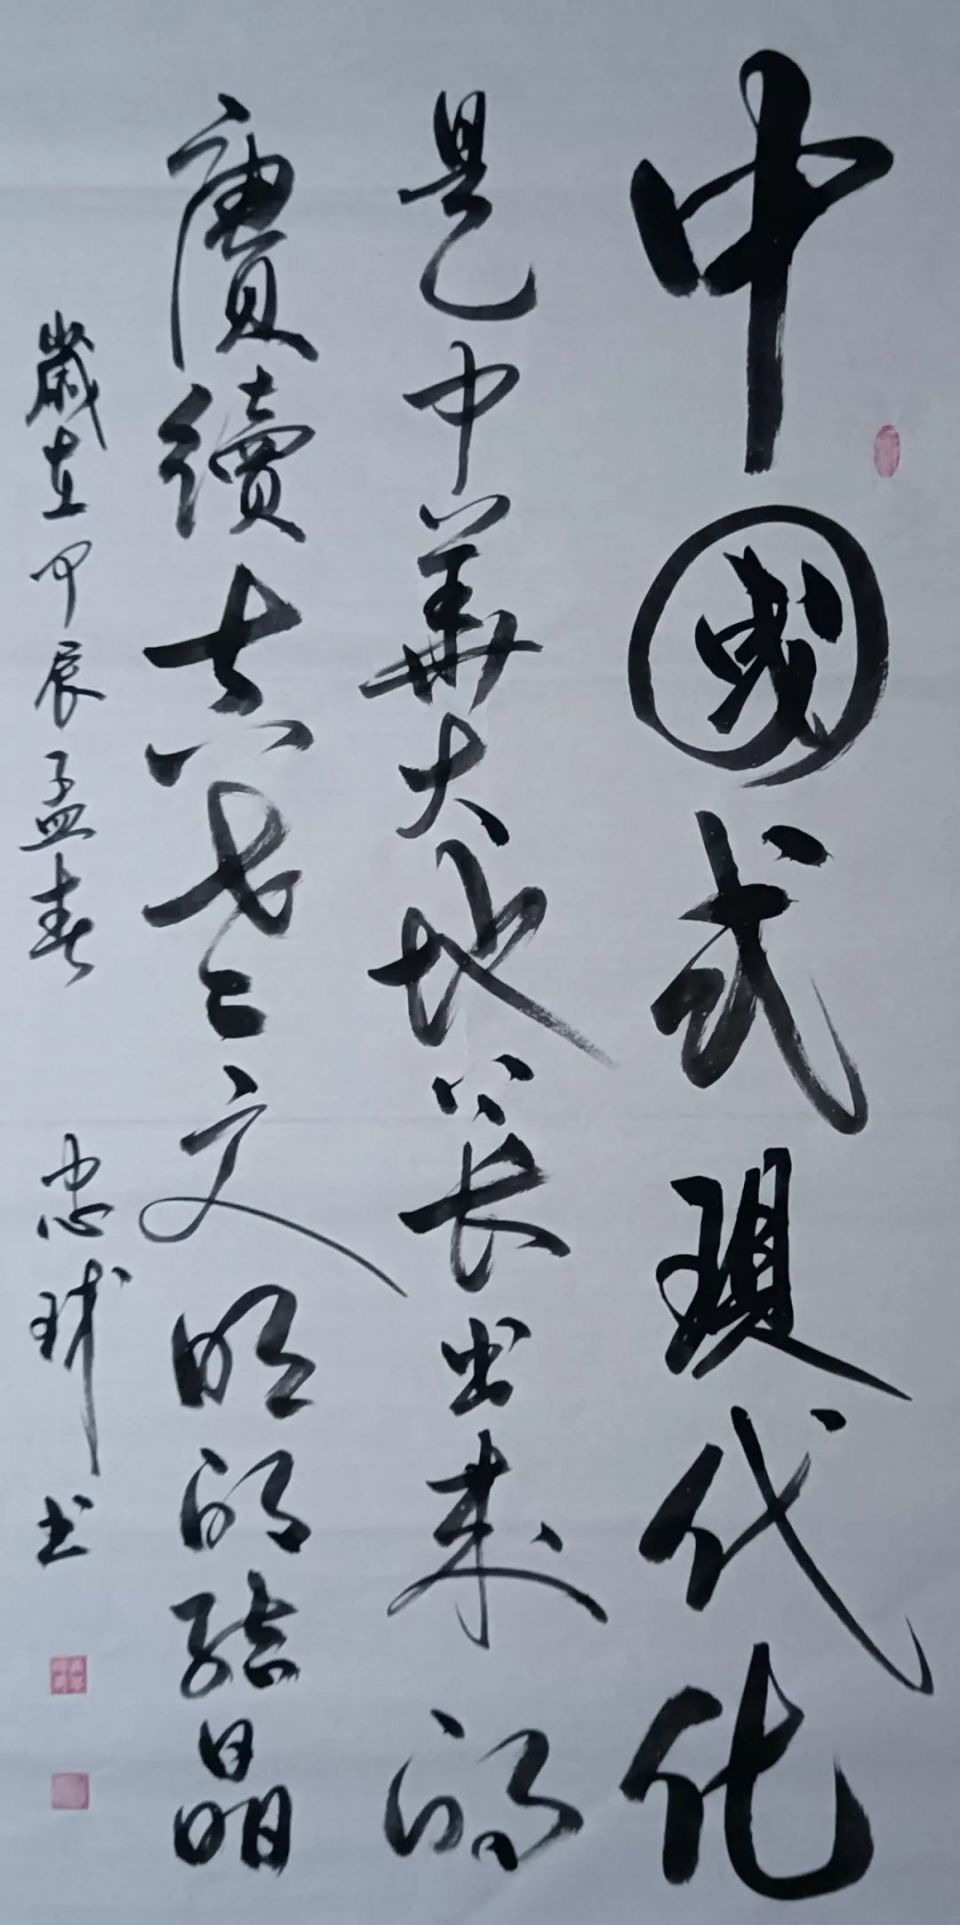 中國式現代化
是中華大地长出来的
賡續古老文明的結晶
歲在甲辰孟春 忠球书